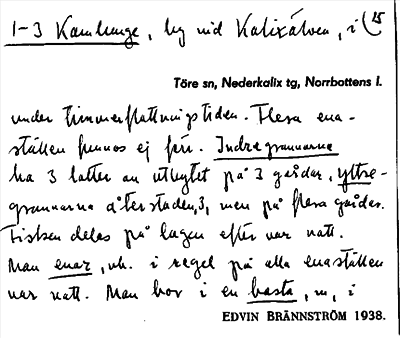 1-3 Kamlunge, by vid Kalixälven, i (25
Töre sn, Nederkalix tg, Norrbottens l.
under timmerflottningstiden. Flera ena-
ställen finnas ej för. Indregrannarna
ha 3 lotter av utbytet på 3 gårdar, yttre-
grannarna återstaden, 3, men på flera gårdar.
Fisken delas på lagen efter var natt.
Man enar, vb. i regel på alla enaställen
var natt. Man bor i en basta, m, i
EDVIN BRÄNNSTRÖM 1938.